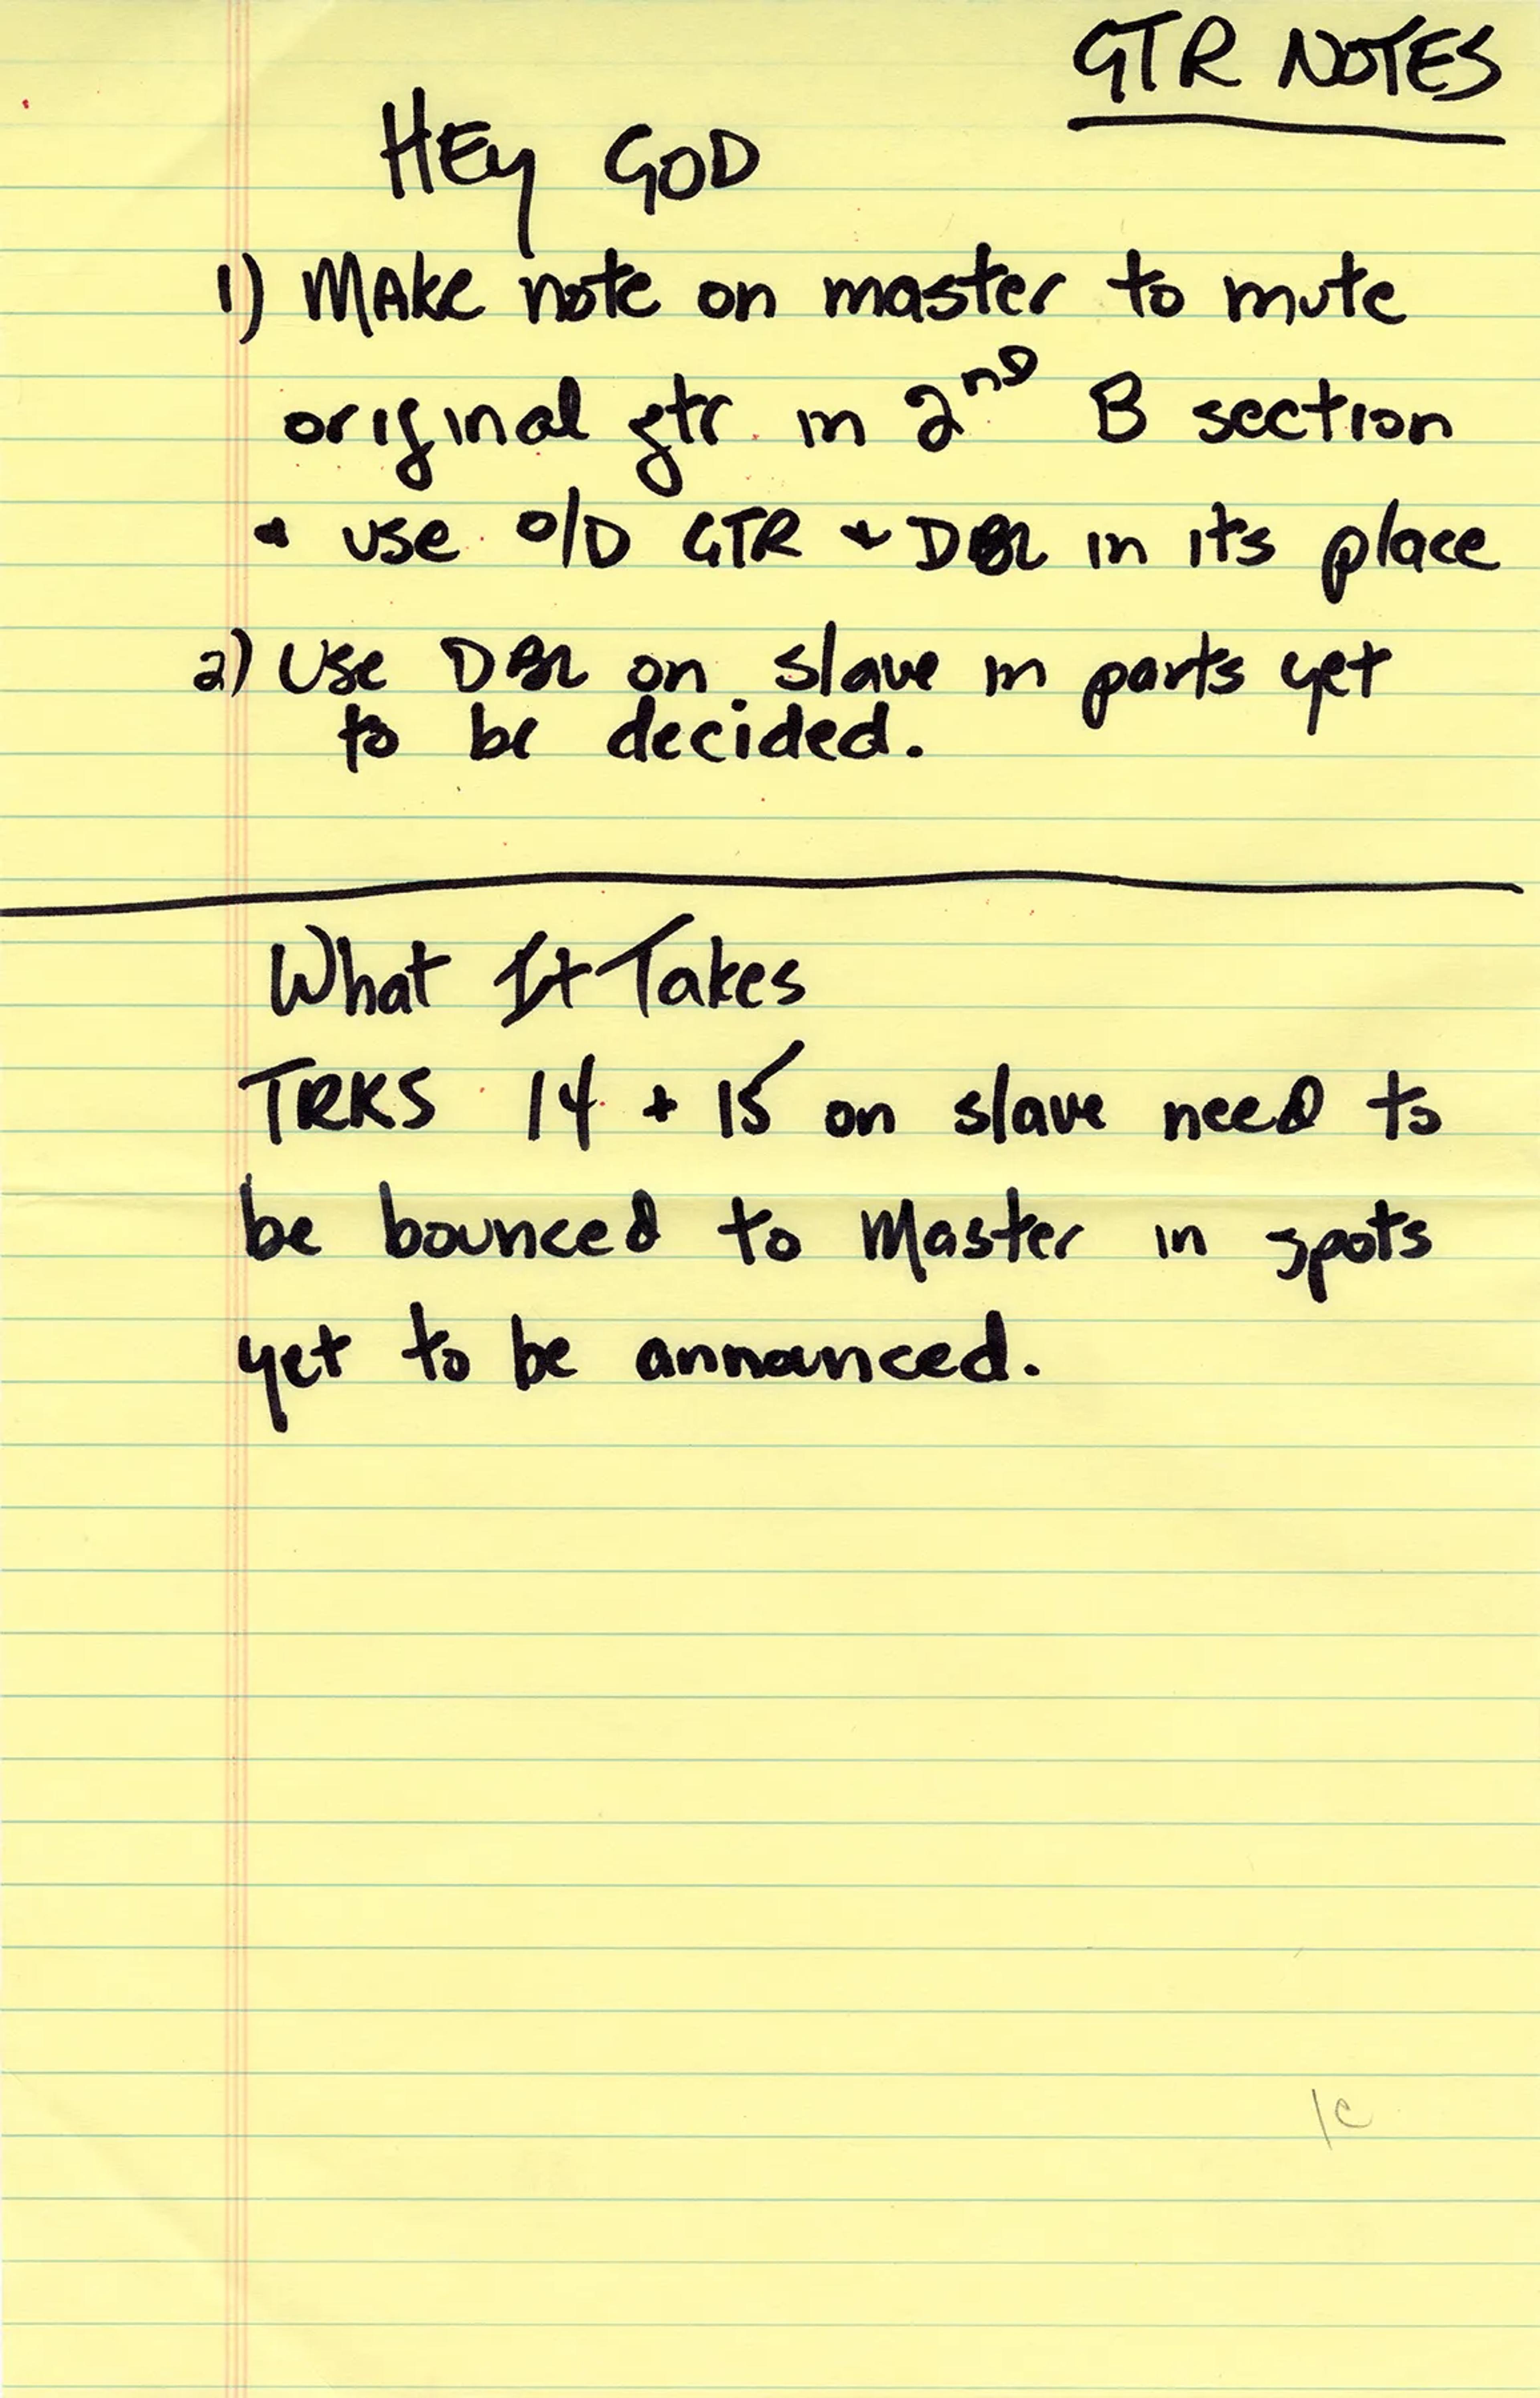 GTR NOTES
HEY GOD
1) MAke note on master to mute
original gtr in 2nD B section
+ use O/D GTR + DBL in its place
2) Use DBL on slave in parts yet
to be decided.
What It Takes
TRKS 14 + 15 on slave need to
be bounced to Master in spots
yet to be announced.